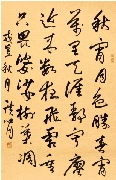 秋宵月色勝春宵
萬里天涯靜寂寥
近來數夜飛霜重
只畏娑婆樹葉凋
戎昱秋月